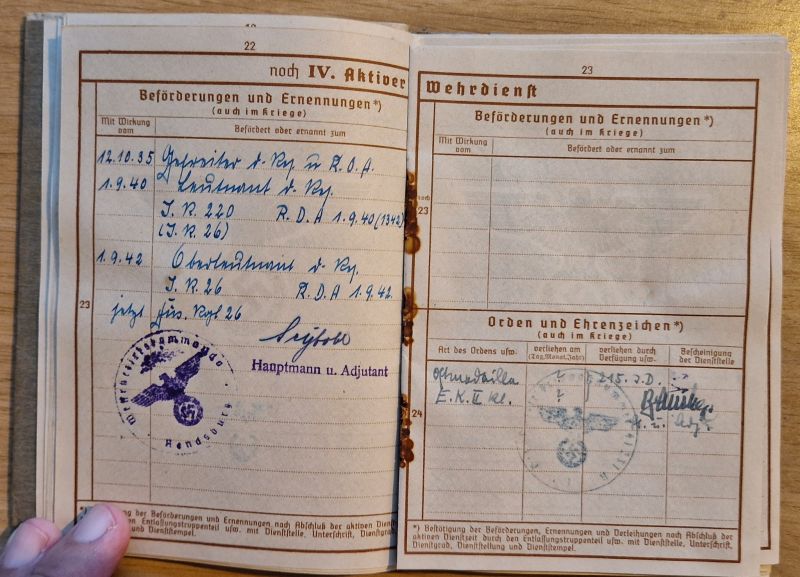 22
noch IV. Aktiver
Beförderungen und Ernennungen*)
(auch im Kriege)
Mit Wirkung vom
Befördert oder ernannt zum
12.10.35 Gefreiter d. Res. u. R.O.A.
1.9.40 Leutnant d. Res.
I.R. 220 R.D.A 1.9.40 (1342)
(I.R. 26)
1.9.42 Oberleutnant d. Res.
I.R. 26 R.D.A 1.9.42.
jetzt Füs. Rgt 26
23
Hauptmann u. Adjutant
Wehrmeldebezirkskommando
Rendsburg
*) Bestätigung der Beförderungen und Ernennungen nach Abschluß der aktiven Dienst
den Entlassungstruppenteil usw. mit Dienststelle, Unterschrift, Dienstgrad,
und Dienststempel.
23
Wehrdienst
Beförderungen und Ernennungen*)
(auch im Kriege)
Mit Wirkung vom
Befördert oder ernannt zum
noch
23
Orden und Ehrenzeichen*)
(auch im Kriege)
Art des Ordens usw.
verliehen am
(Tag, Monat, Jahr)
verliehen durch
Verfügung usw.
Bescheinigung
der Dienststelle
Ostmedaille ? 215. I.D.
E.K. II Kl. ?
24
*) Bestätigung der Beförderungen, Ernennungen und Verleihungen nach Abschluß der
aktiven Dienstzeit durch den Entlassungstruppenteil usw. mit Dienststelle, Unterschrift,
Dienstgrad, Dienststellung und Dienststempel.